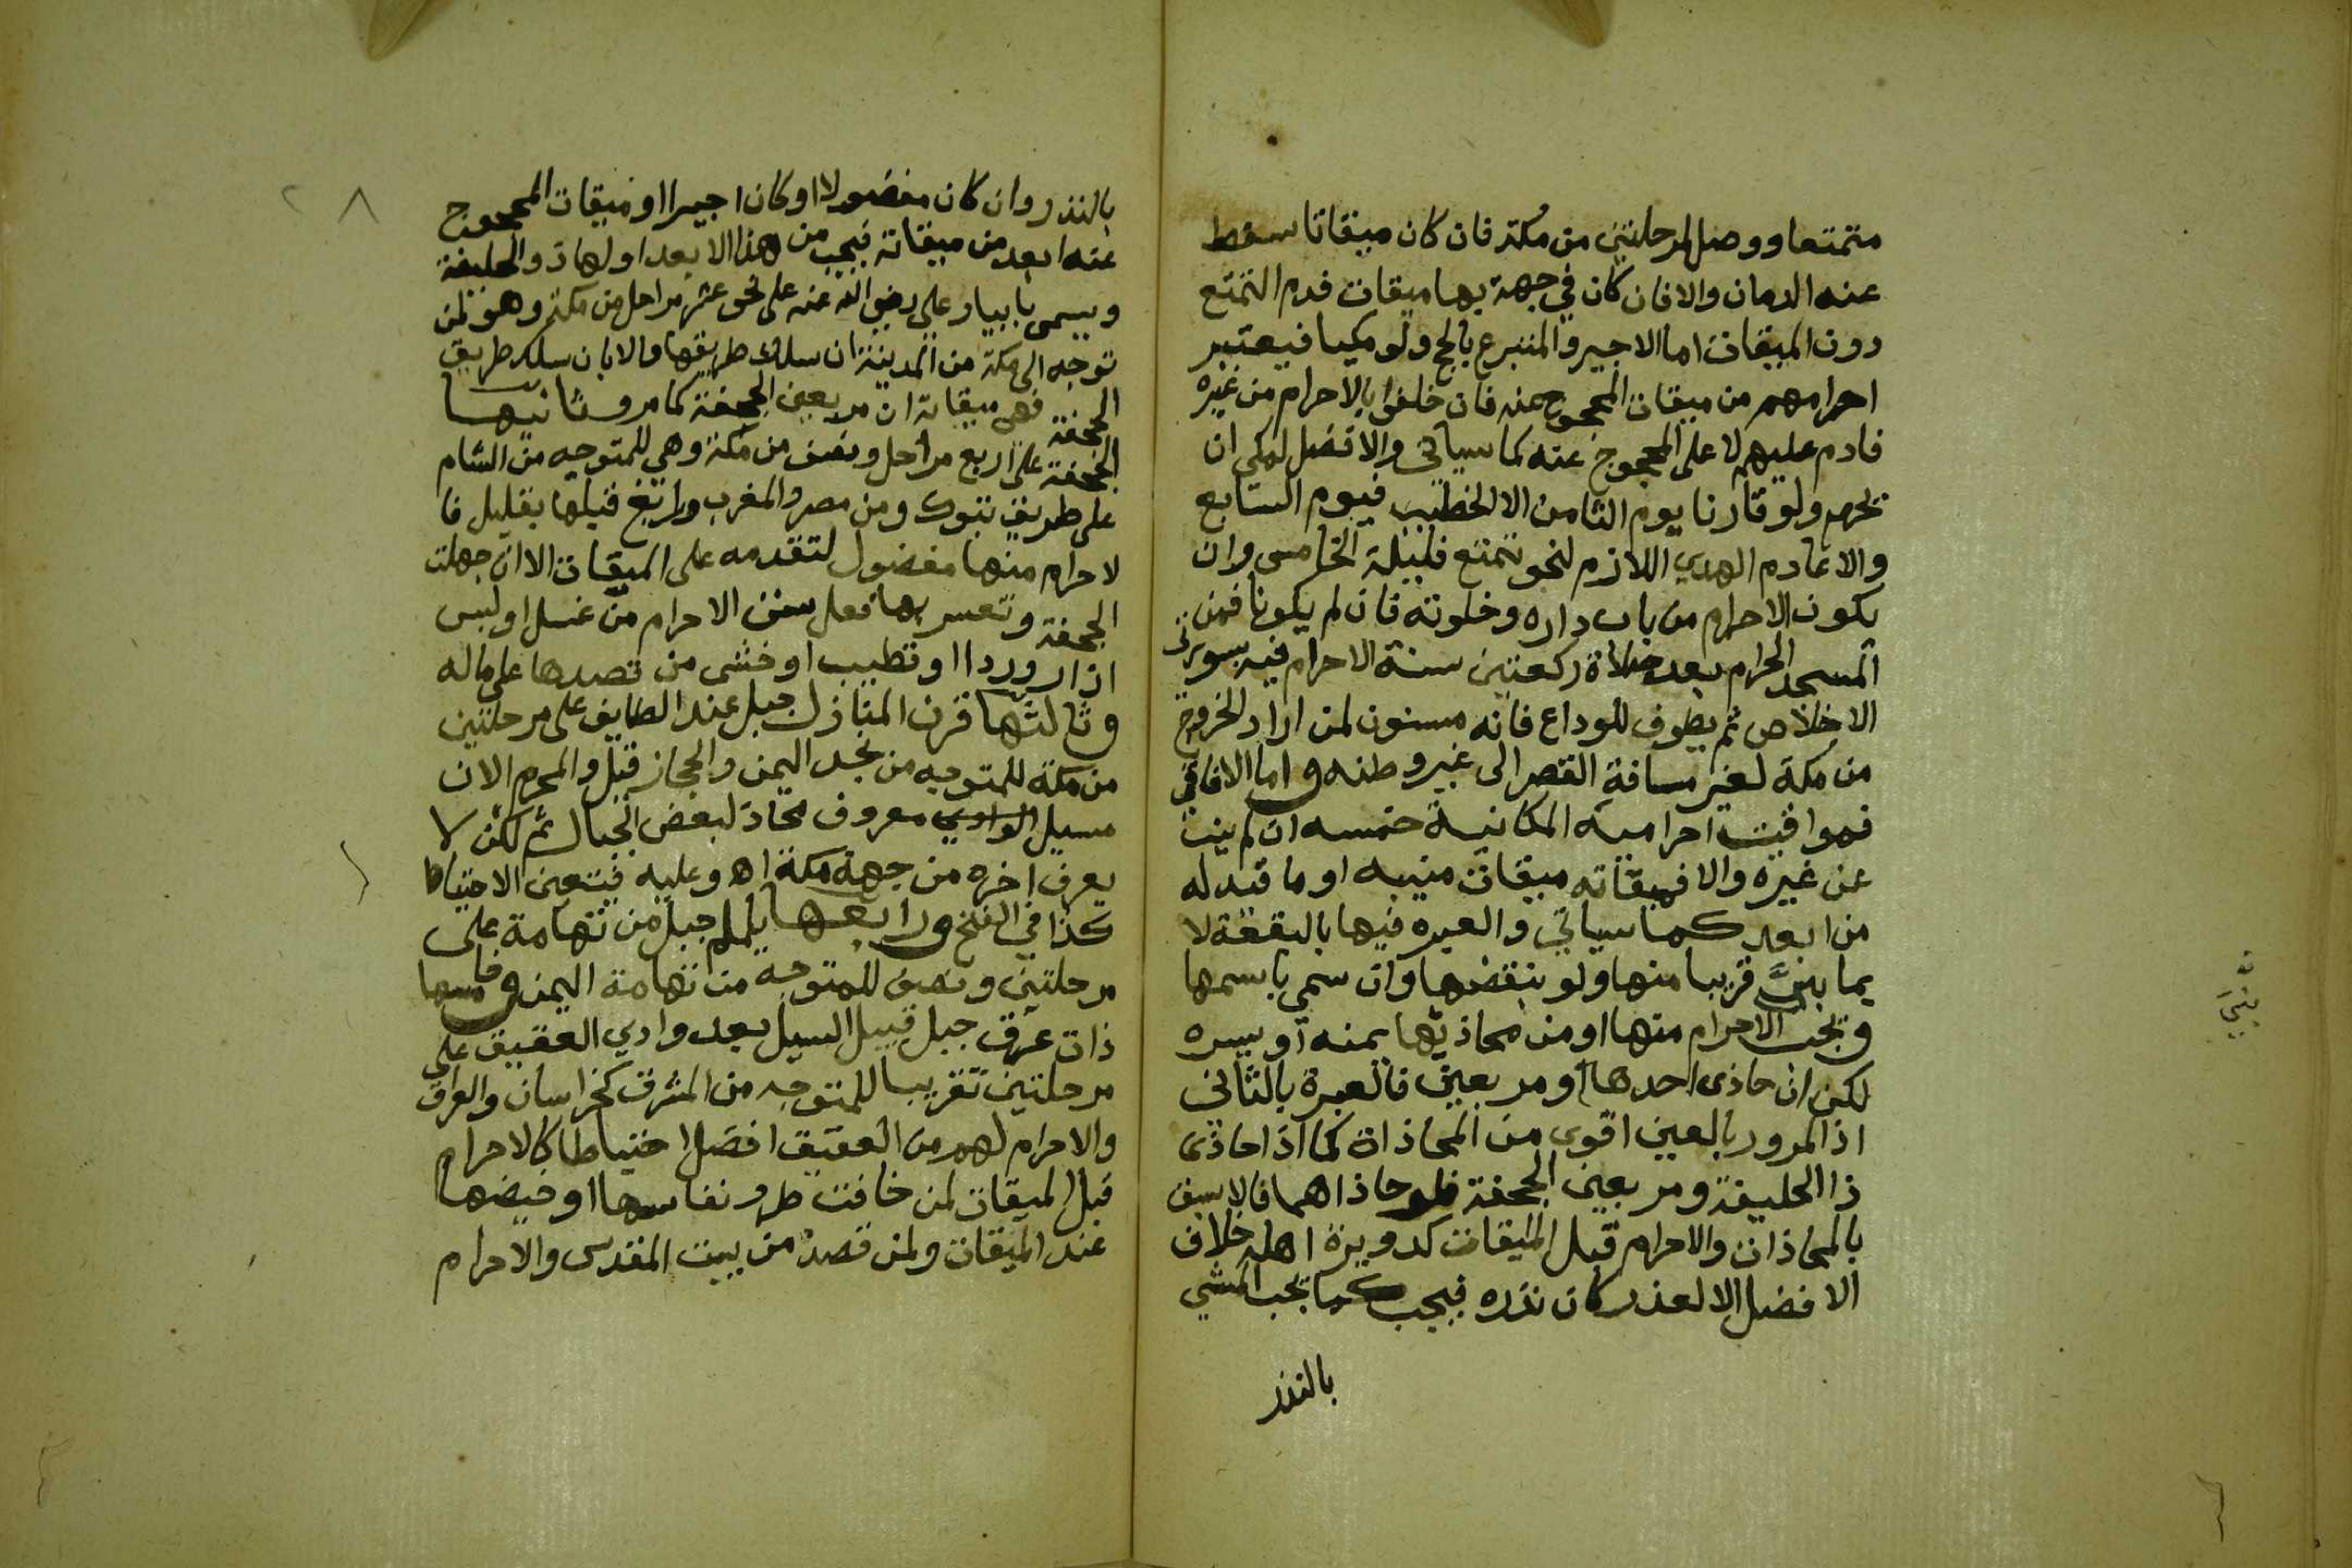 متمتعا ووصل لمرحلتين من مكة فان كان ميقاتا سقط
عنه الدمان والا فان كان في جهة بها ميقات فدم التمتع
دون الميقات اما الاجير والمتبرع بالحج ولو مكيا فيعتبر
احرامهم من ميقات المحجوج عنه فان خلفوا بالاحرام من غيره
فادم عليهم لا على المحجوج عنه كما سياتي والافضل لمكي ان
يحرم ولو قارنا يوم الثامن الا لخطيب فيوم السابع
والا عادم الهدي اللازم لنحو تمتع فليلة الخامس وان
يكون الاحرام من باب داره وخلوته فان لم يكونا فمن
المسجد الحرام بعد صلاة ركعتين سنة الاحرام فيه بسورتي
الاخلاص ثم يطوف للوداع فانه مسنون لمن اراد الخروج
من مكة لغير مسافة القصر الى غير وطنه واما الافاقي
فمواقيت احرامه المكانية خمسه ان لم ينب
عن غيره والا فميقاته ميقات منيبه او ما قيد له
من ابعد كما سياتي والعبره فيها بالبقعة لا
بما بني قريبا منها ولو بنقضها وان سمي باسمها
ويجب الاحرام منها او من محاذيها يمنه او يسره
لكن ان حاذى احدها او مر بعين فالعبرة بالثاني
اذ المرور بالعين اقوى من المحاذاة كما اذا حاذى
ذا الحليفة ومر بعين الجحفة فلو حاذاهما فالاسبق
بالمحاذات والاحرام قبل الميقات كدويرة اهله خلاف
الافضل الا لعذر كان نذره فيجب كما يجب المشي
بالنذر
٢٨
بالنذر وان كان مفضولا او كان اجيرا وميقات المحجوج
عنه ابعد من ميقاته فيجب من هذا الابعد اولها ذو الحليفة
ويسمى بابيار علي رضي الله عنه على نحو عشر مراحل من مكة وهو لمن
توجه الى مكة من المدينة ان سلك طريقها والا بان سلك طريق
الجحفة فهي ميقاته ان مر بعين الجحفة كما مر وثانيها
الجحفة على اربع مراحل ونصف من مكة وهي للمتوجه من الشام
على طريق تبوك ومن مصر والمغرب ورابغ قبلها بقليل فا
لاحرام منها مفضول لتقدمه على الميقات الا ان جهلت
الجحفة وتعسر بها فعل سنن الاحرام من غسل او لبس
ازار وردا او تطييب او خشى من قصدها على ماله
وثالثها قرن المنازل جبل عند الطايف على مرحلتين
من مكة للمتوجه من نجد اليمن والحجاز قيل والمحرم الان
مسيل الوادي معروف محاذ لبعض الجبال ثم لكن لا
يعرف اخره من جهة مكة اه وعليه فيتعين الاحتياط
كذا في الفتح ورابعها يلملم جبل من تهامة على
مرحلتين ونصف للمتوجه من تهامة اليمن وخامسها
ذات عرق جبل قبيل السيل بعد وادي العقيق على
مرحلتين تقريبا للمتوجه من المشرق كخراسان والعراق
والاحرام لهم من العقيق افضل احتياطا كالاحرام
قبل الميقات لمن خافت طرو نفاسها او حيضها
عند الميقات ولمن قصد من بيت المقدس والاحرام